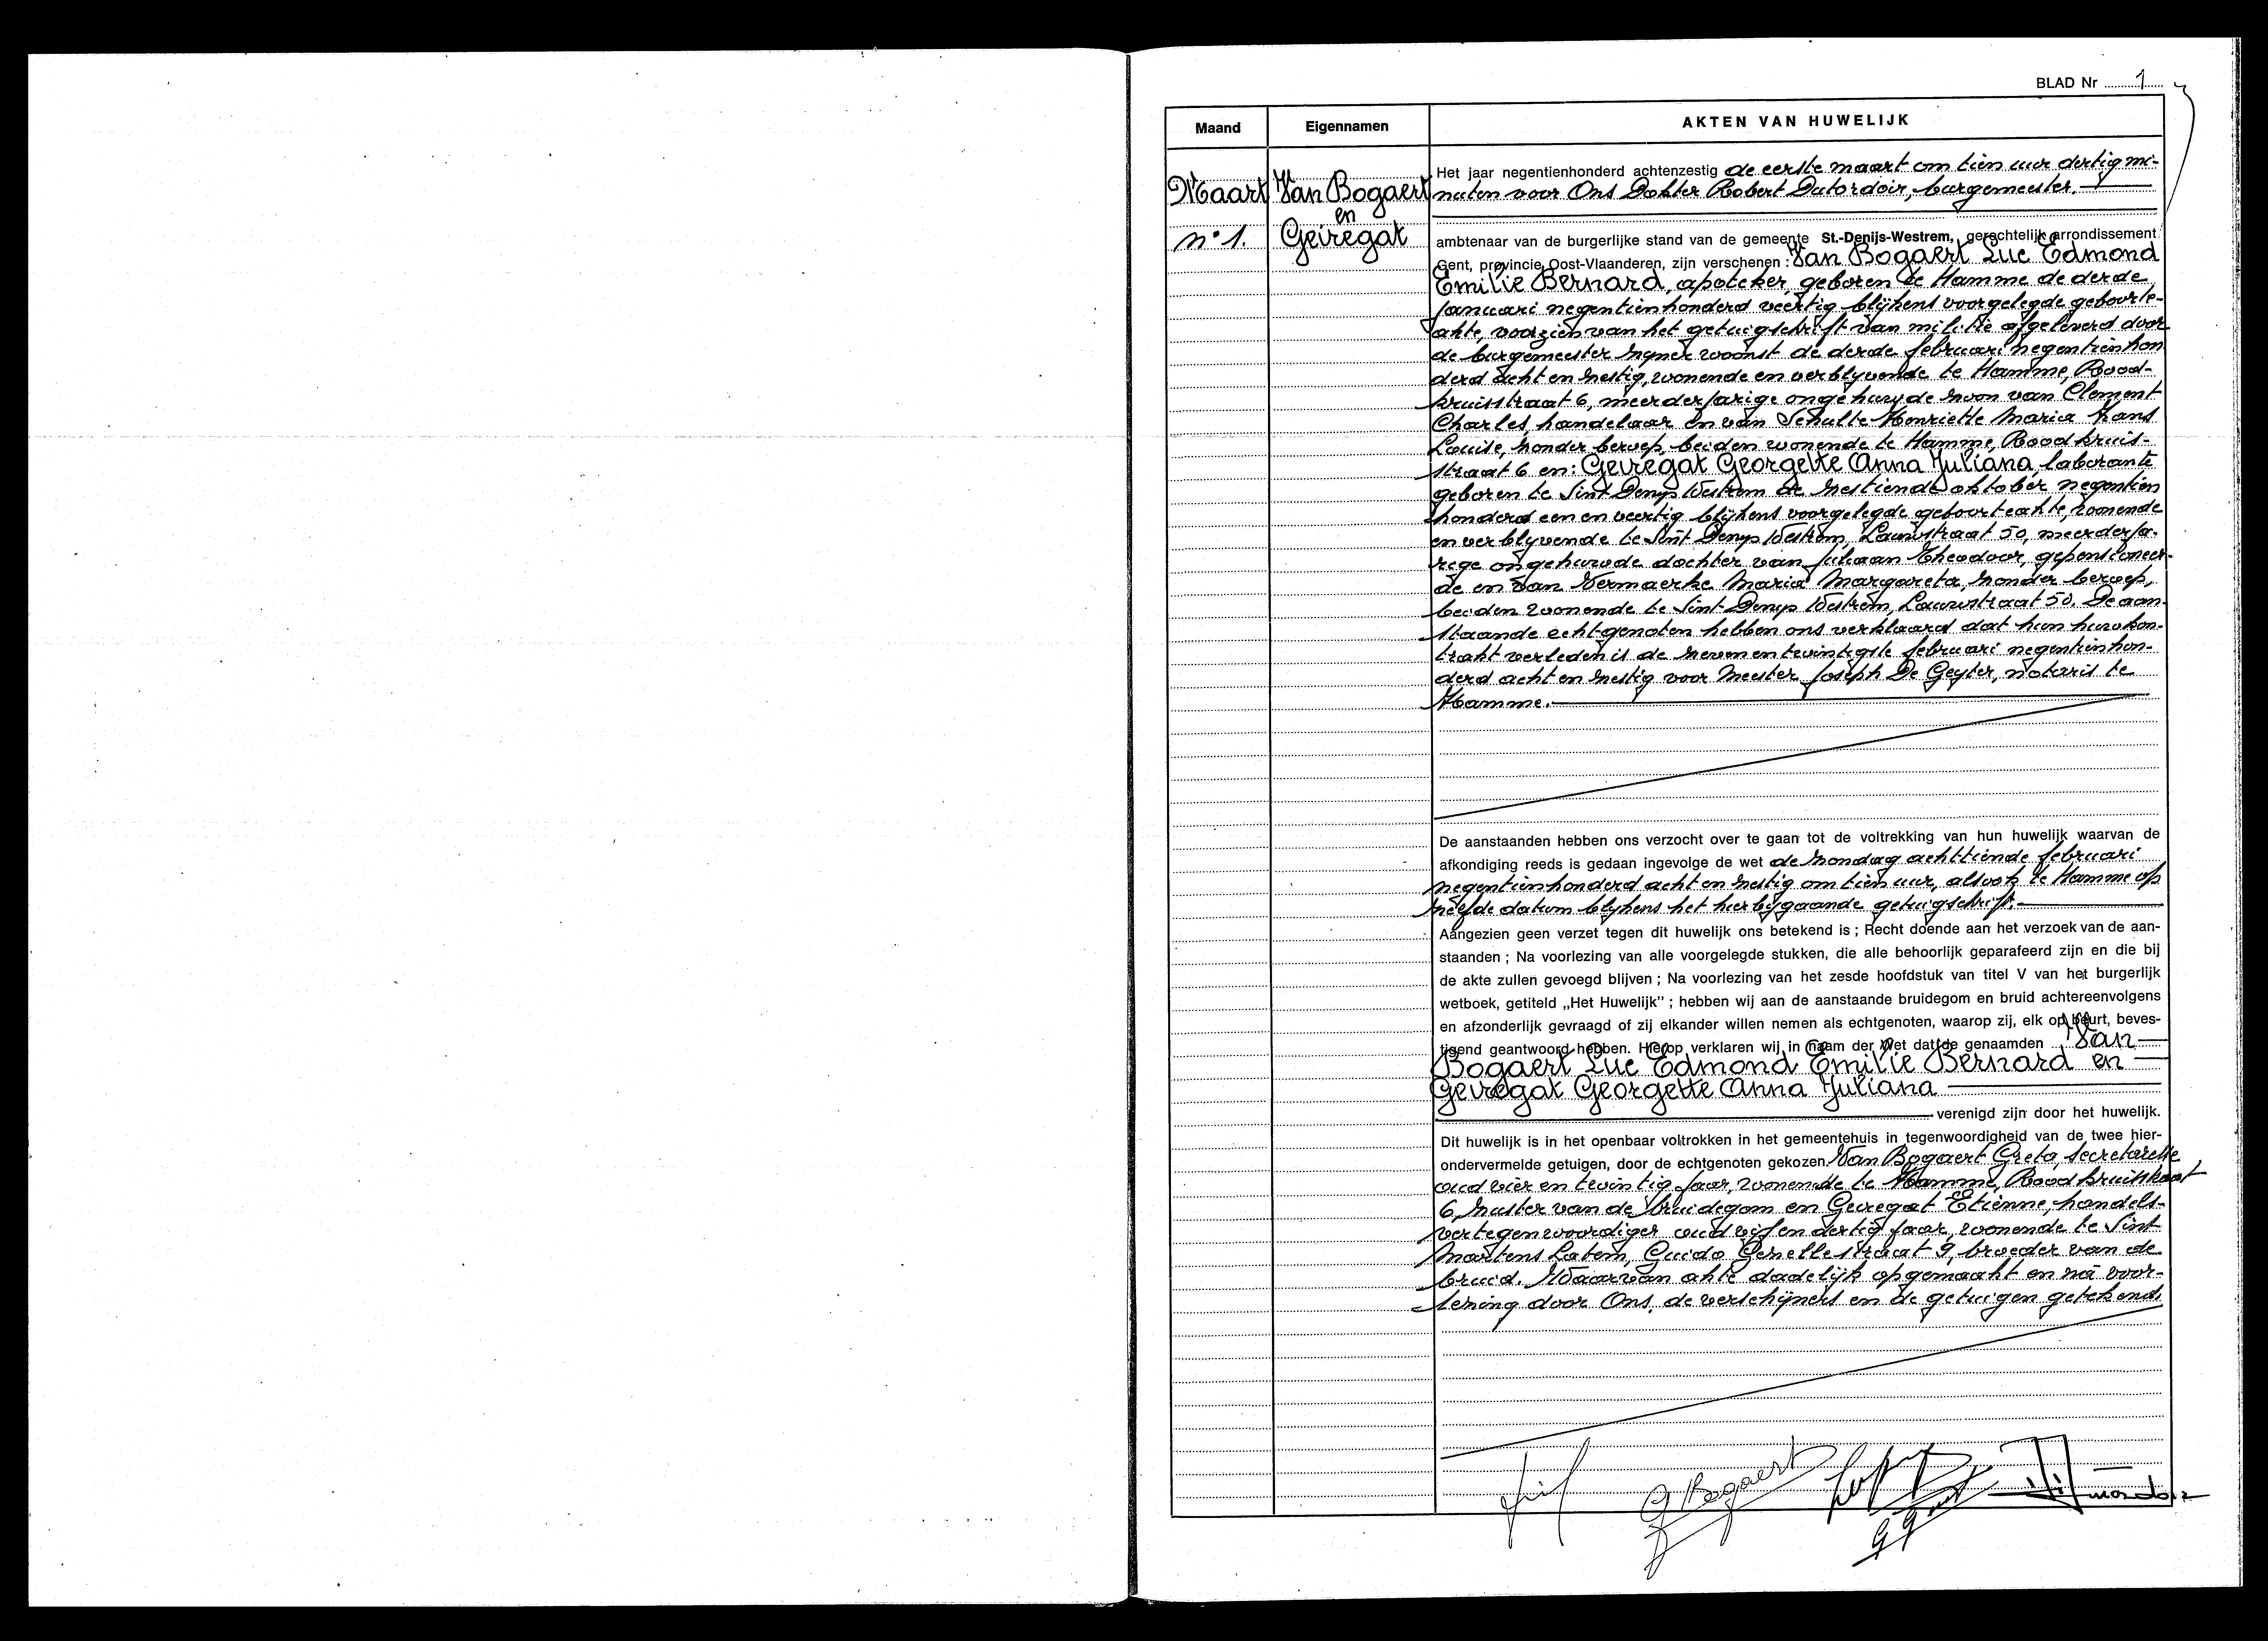 BLAD Nr 1
Maand
Eigennamen
AKTEN VAN HUWELIJK
Maart
n° 1.
Van Bogaert
en
Geiregat
Het jaar negentienhonderd achtenzestig de eerste maart om tien uur dertig mi-
nuten voor Ons Dokter Robert Datordoir, burgemeester.
ambtenaar van de burgerlijke stand van de gemeente St.-Denijs-Westrem, gerechtelijk arrondissement
Gent, provincie Oost-Vlaanderen, zijn verschenen : Van Bogaert Luc Edmond
Emilie Bernard, apoteker, geboren te Hamme de derde
januari negentienhonderd veertig blijkens voorgelegde geboorte-
akte, voorzien van het getuigschrift van militie afgeleverd door
de burgemeester zyner woonst de derde februari negentienhon
derd acht en zestig, wonende en verblyvende te Hamme, Rood-
kruisstraat 6, meerderjarige ongehuwde zoon van Clement
Charles, handelaar en van Schulte Henriette Maria Hans
Louise, zonder beroep, beiden wonende te Hamme, Roodkruis-
straat 6 en: Geiregat Georgette Anna Juliana, laborante
geboren te Sint Denys Westrem de zestiende oktober negentien
honderd een en veertig blijkens voorgelegde geboorteakte, wonende
en verblyvende te Sint Denys Westrem, Lauwstraat 50, meerderja-
rige ongehuwde dochter van Juliaan Theodoor, gepensioneer-
de en van Vermaerke Maria Margareta, zonder beroep,
beiden wonende te Sint-Denys Westrem, Lauwstraat 50. De aan-
staande echtgenoten hebben ons verklaard dat hun huwkon-
trakt verleden is de zeven en twintigste februari negentienhon-
derd acht en zestig voor Meester Joseph De Geyter, notaris te
Hamme.
De aanstaanden hebben ons verzocht over te gaan tot de voltrekking van hun huwelijk waarvan de
afkondiging reeds is gedaan ingevolge de wet de zondag achttiende februari
negentienhonderd acht en zestig om tien uur, alsook te Hamme op
zelfde datum blykens het hierbygaande getuigschrift.
Aangezien geen verzet tegen dit huwelijk ons betekend is ; Recht doende aan het verzoek van de aan-
staanden ; Na voorlezing van alle voorgelegde stukken, die alle behoorlijk geparafeerd zijn en die bij
de akte zullen gevoegd blijven ; Na voorlezing van het zesde hoofdstuk van titel V van het burgerlijk
wetboek, getiteld „Het Huwelijk" ; hebben wij aan de aanstaande bruidegom en bruid achtereenvolgens
en afzonderlijk gevraagd of zij elkander willen nemen als echtgenoten, waarop zij, elk op beurt, beves-
tigend geantwoord hebben. Hierop verklaren wij in naam der Wet dat de genaamden Van
Bogaert Luc Edmond Emilie Bernard en
Geiregat Georgette Anna Juliana
verenigd zijn door het huwelijk.
Dit huwelijk is in het openbaar voltrokken in het gemeentehuis in tegenwoordigheid van de twee hier-
ondervermelde getuigen, door de echtgenoten gekozen Van Bogaert Greta, secretaresse
oud vier en twintig jaar, wonende te Hamme, Roodkruisstraat
6, zuster van de bruidegom en Geiregat Etienne, handels-
vertegenwoordiger oud vijf en dertig jaar, wonende te Sint
Martens Latem, Guido Gezellestraat 9, broeder van de
bruid. Waarvan akte dadelijk opgemaakt en na voor-
lezing door Ons, de verschijners en de getuigen getekend.
G Bogaert